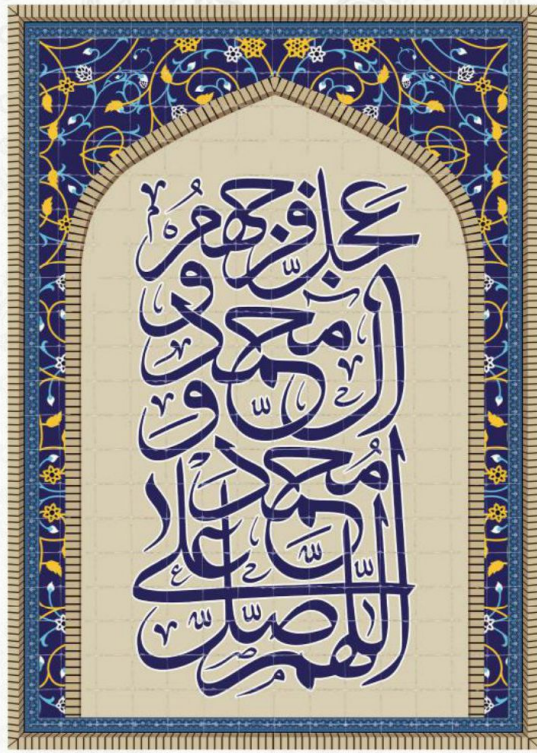 اللّهم صلّ علی
محمّد و
آل محمّد و
عجّل فرجهم